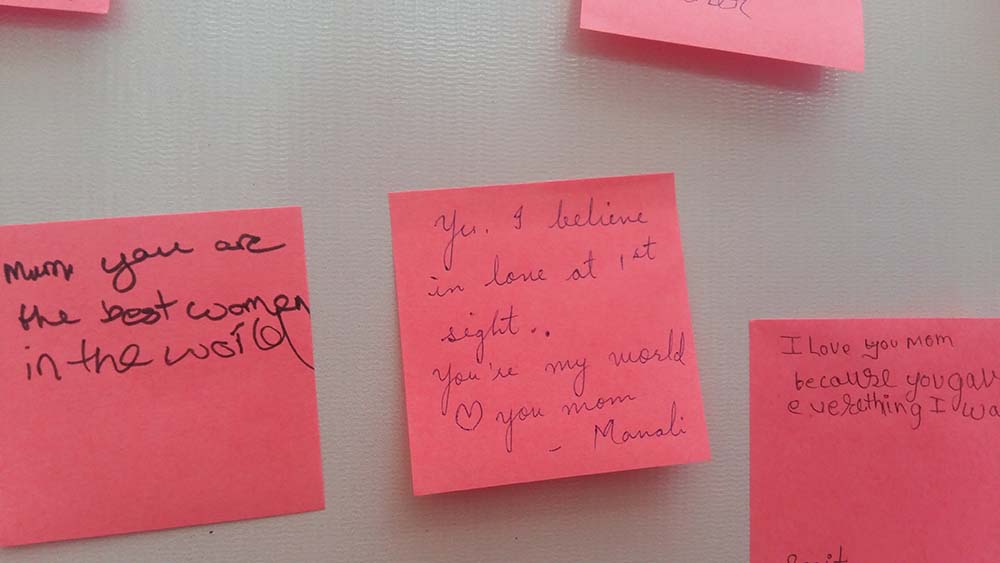 Mum you are
the best women
in the world
Yes. I believe
in love at 1st
sight..
You're my world
♡ you mom
- Manali
I Love you Mom
because you gav
everething I wa